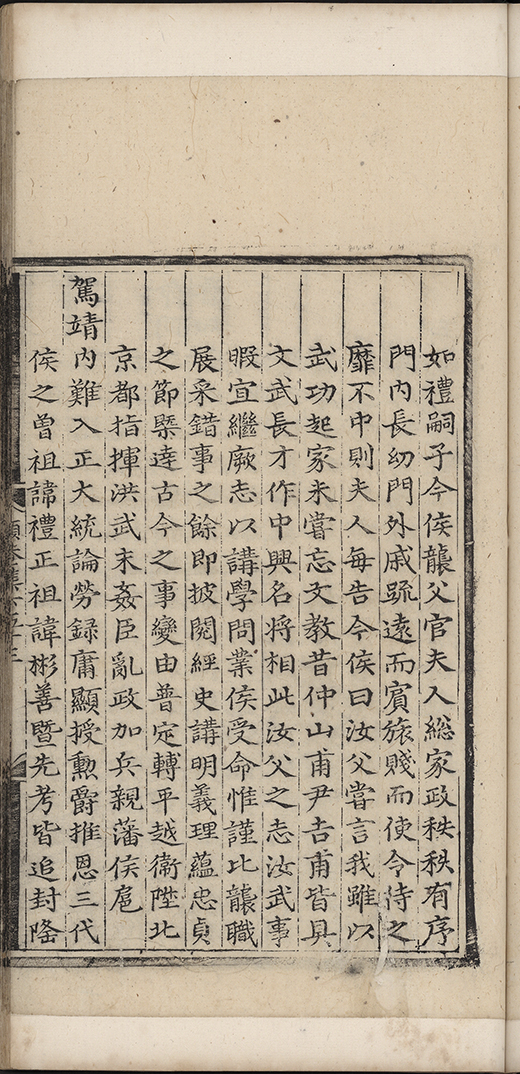 如禮嗣子今侯襲父官夫人緫家政秩秩有序
門内長㓜門外戚䟽遠而賔旅賤而使令待之
靡不中則夫人每告今侯曰汝父嘗言我雖以
武功起家未嘗忘文教昔仲山甫尹吉甫皆具
文武長才作中興名將相此汝父之志汝武事
暇宜繼厥志以講學問業侯受命惟謹比襲職
展采錯事之餘即披閱經史講明義理蘊忠貞
之節槩逹古今之事變由普定轉平越衞陞北
京都指揮洪武末姦臣亂政加兵親藩侯扈
駕靖内難入正大統論勞録庸顯授勲爵推恩三代
侯之曾祖諱禮正祖諱彬善暨先考皆追封隆